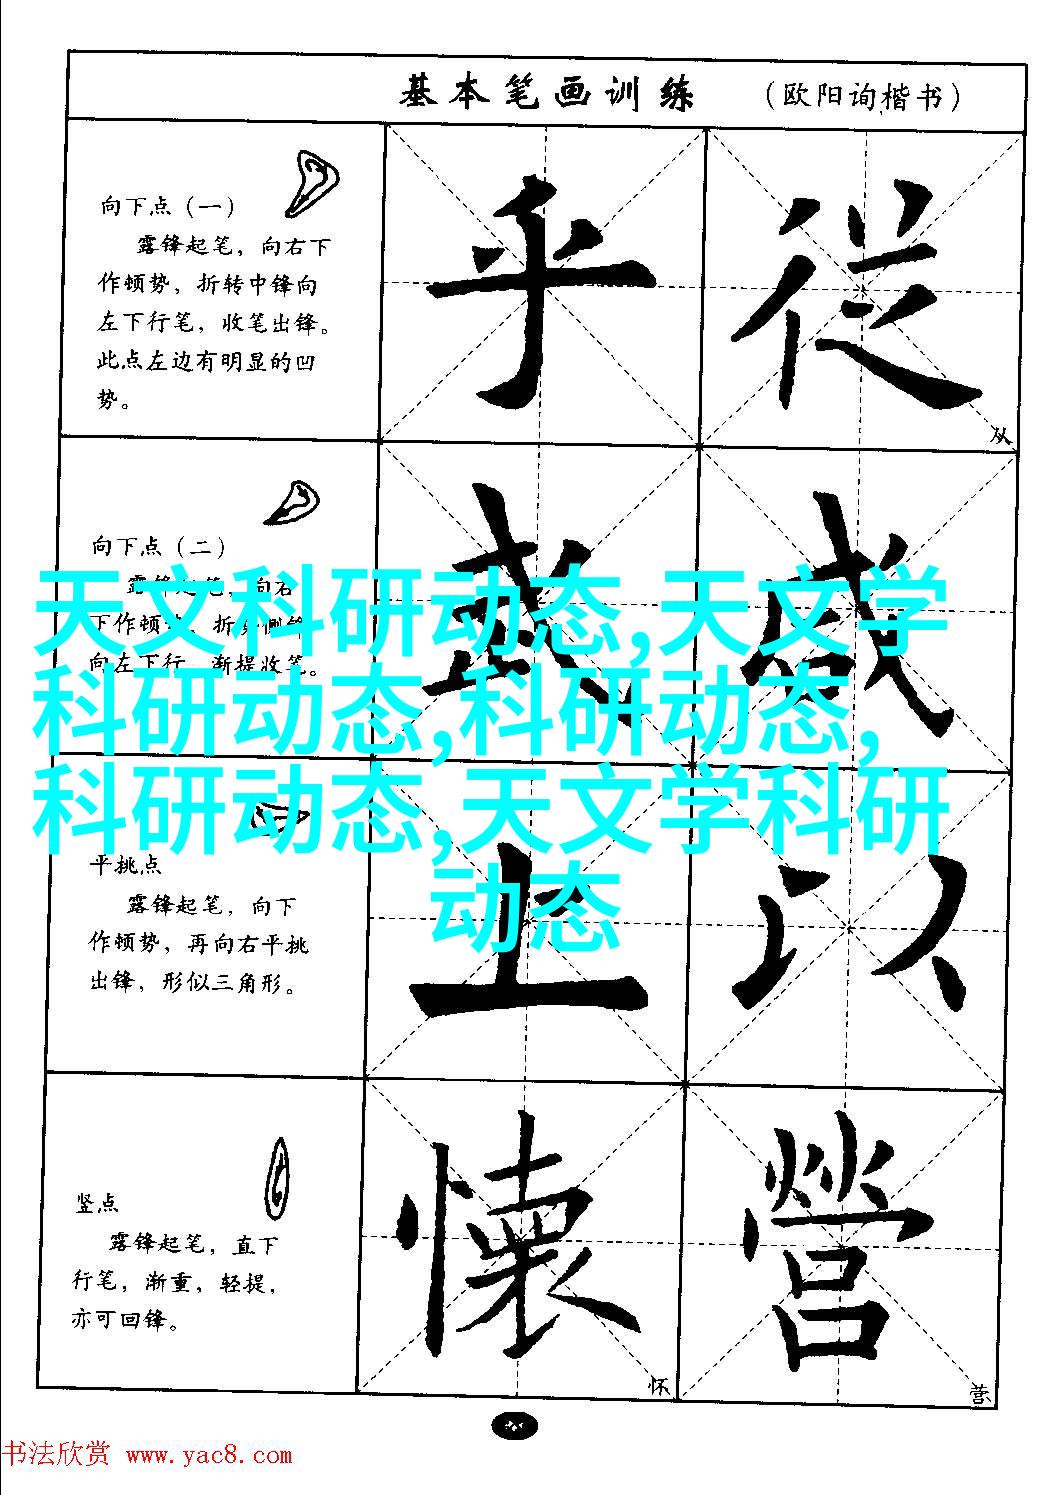 基本笔画训练 （欧阳询楷书）
向下点（一）
露锋起笔，向右下
作顿势，折转中锋向
左下行笔，收笔出锋。
此点左边有明显的凹
势。
乎 從
从
向下点（二）
露锋起笔，向右
下作顿势，折势侧锋
向左下行，渐提收笔。
盛 感
天文科研动态,天文学
科研动态,科研动态,
科研动态,天文学科研
动态
平挑点
露锋起笔，向下
作顿势，再向右平挑
出锋，形似三角形。
上 以
竖点
露锋起笔，直下
行笔，渐重，轻提，
亦可回锋。
懷 營
怀 营
书法欣赏 www.yac8.com